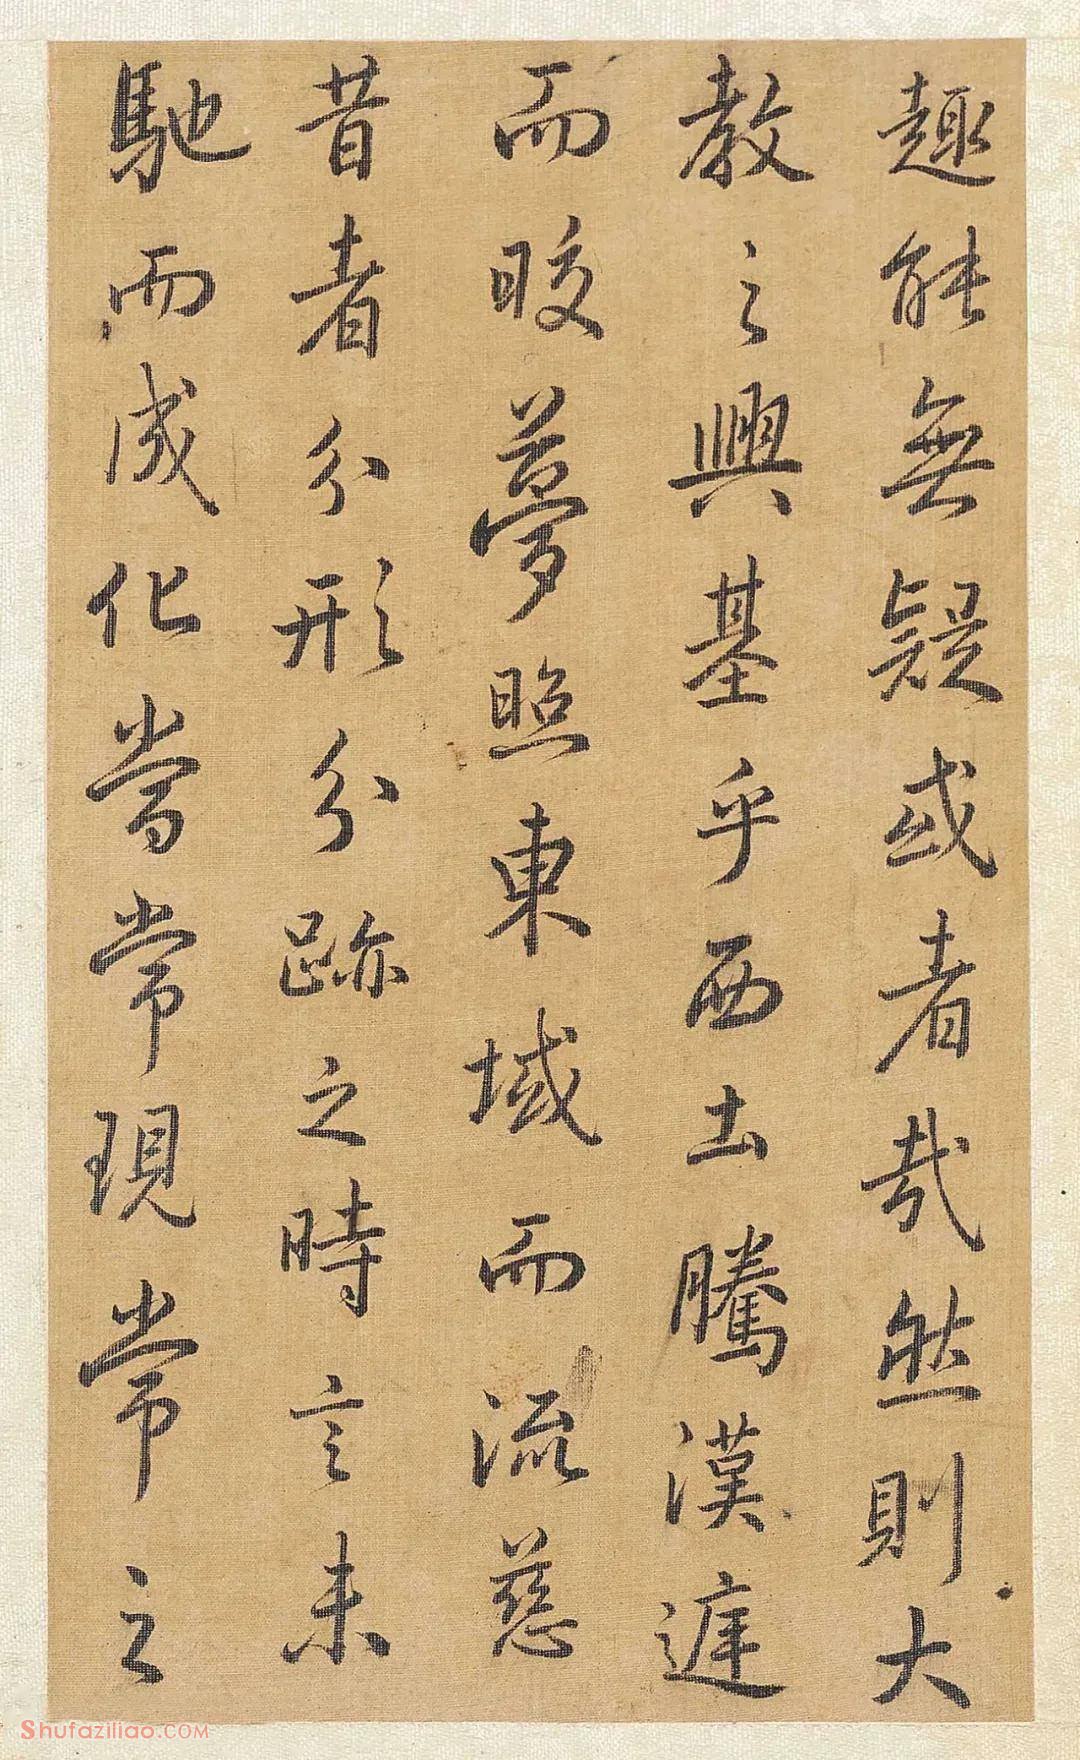 趣能無疑或者哉然則大
教之興基乎西土騰漢遅
而晈夢照東域而流慈
昔者分形分跡之時言未
馳而成化當常現常之
Shufaziliao.COM